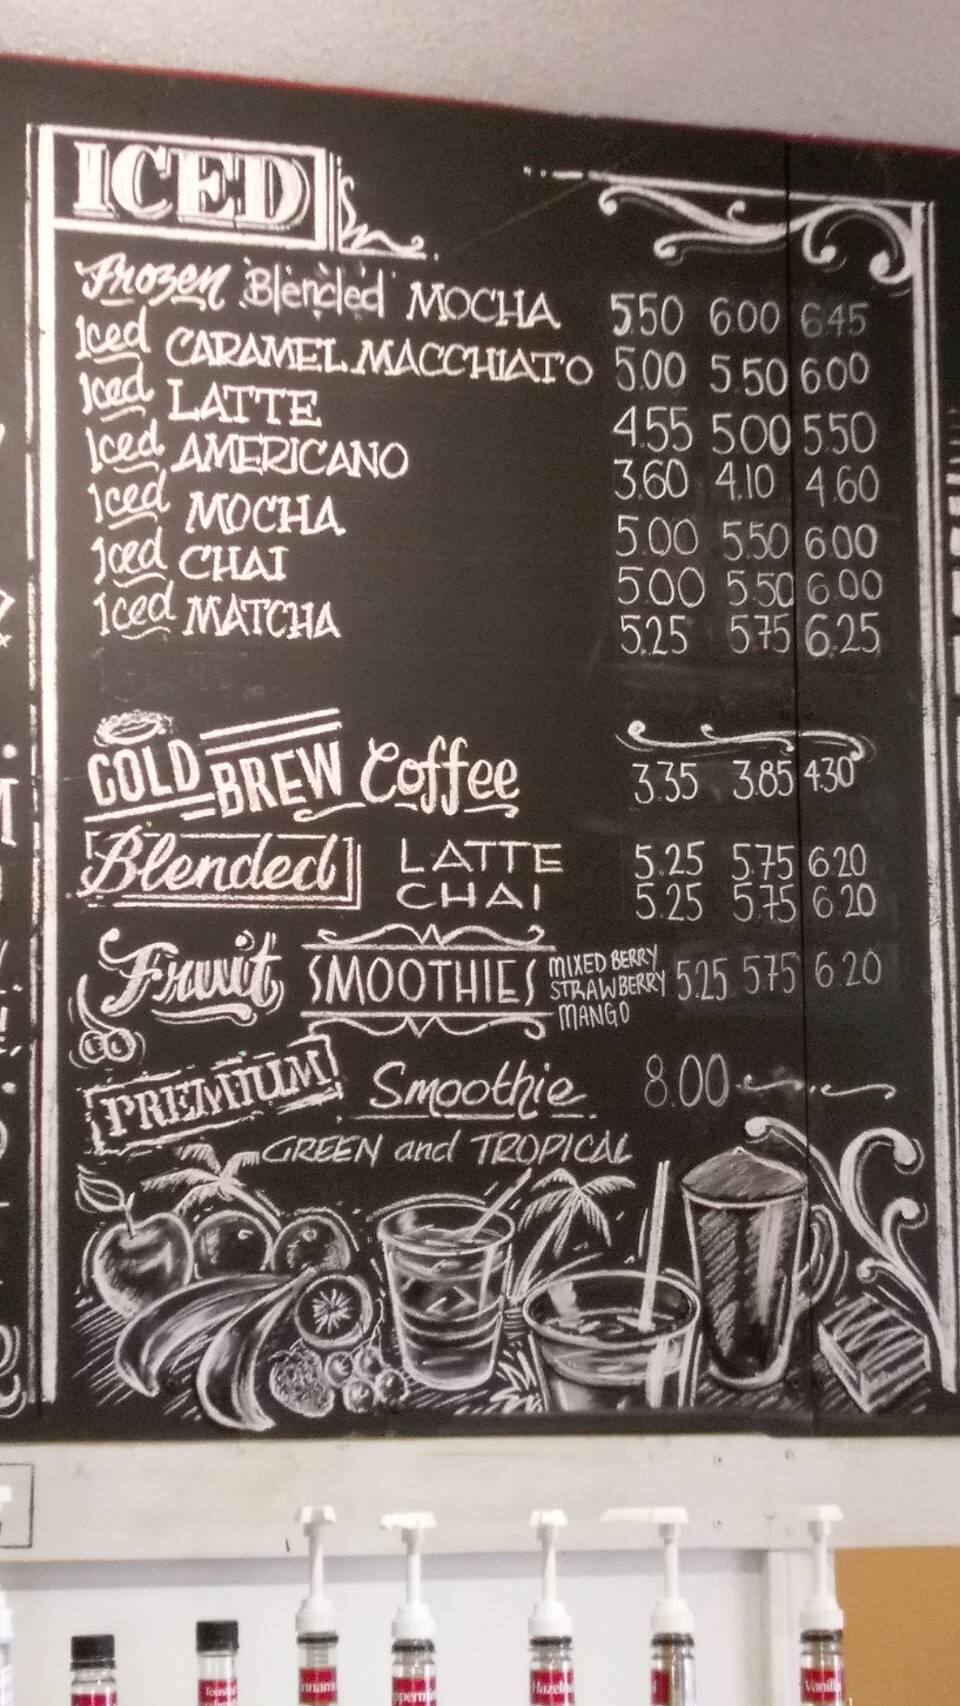 ICED
Frozen Blended MOCHA 5.50 6.00 6.45
Iced CARAMEL MACCHIATO 5.00 5.50 6.00
Iced LATTE 4.55 5.00 5.50
Iced AMERICANO 3.60 4.10 4.60
Iced MOCHA 5.00 5.50 6.00
Iced CHAI 5.00 5.50 6.00
Iced MATCHA 5.25 5.75 6.25
COLD BREW Coffee 3.35 3.85 4.30
Blended LATTE 5.25 5.75 6.20
CHAI 5.25 5.75 6.20
Fruit SMOOTHIES MIXED BERRY
STRAWBERRY 5.25 5.75 6.20
MANGO
PREMIUM Smoothie 8.00
GREEN and TROPICAL
Toasted
Vanill
Hazeln